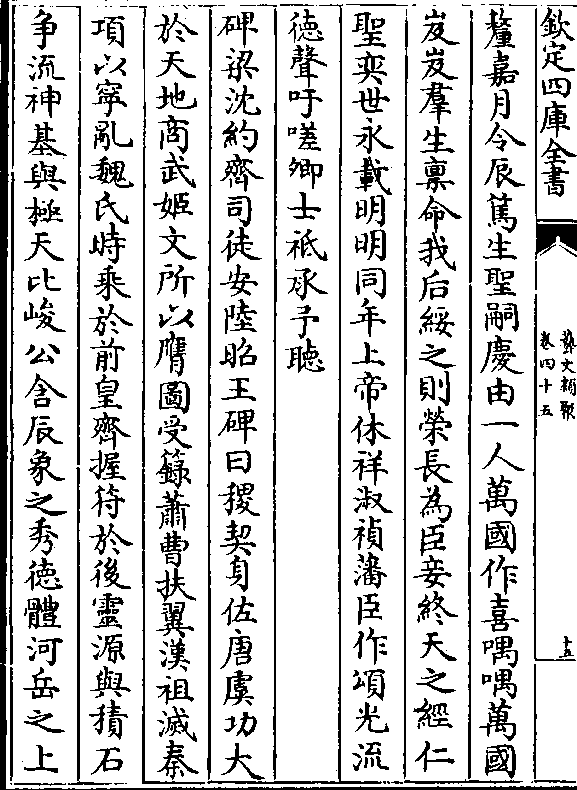 欽定四庫全書
藝文類聚
卷四十五
十五
釐嘉月令辰篤生聖嗣慶由一人萬國作喜喁喁萬國
岌岌羣生禀命我后綏之則榮長為臣妾終天之經仁
聖奕世永載明明同年上帝休祥淑禎藩臣作頌光流
徳聲吁嗟卿士祗承予聽
碑梁沈約齊司徒安陸昭王碑曰稷契身佐唐虞功大
於天地商武姬文所以膺圖受籙蕭曹扶翼漢祖滅秦
項以寧亂魏氏時乘於前皇齊握符於後靈源與積石
争流神基與極天比峻公含辰象之秀徳體河岳之上